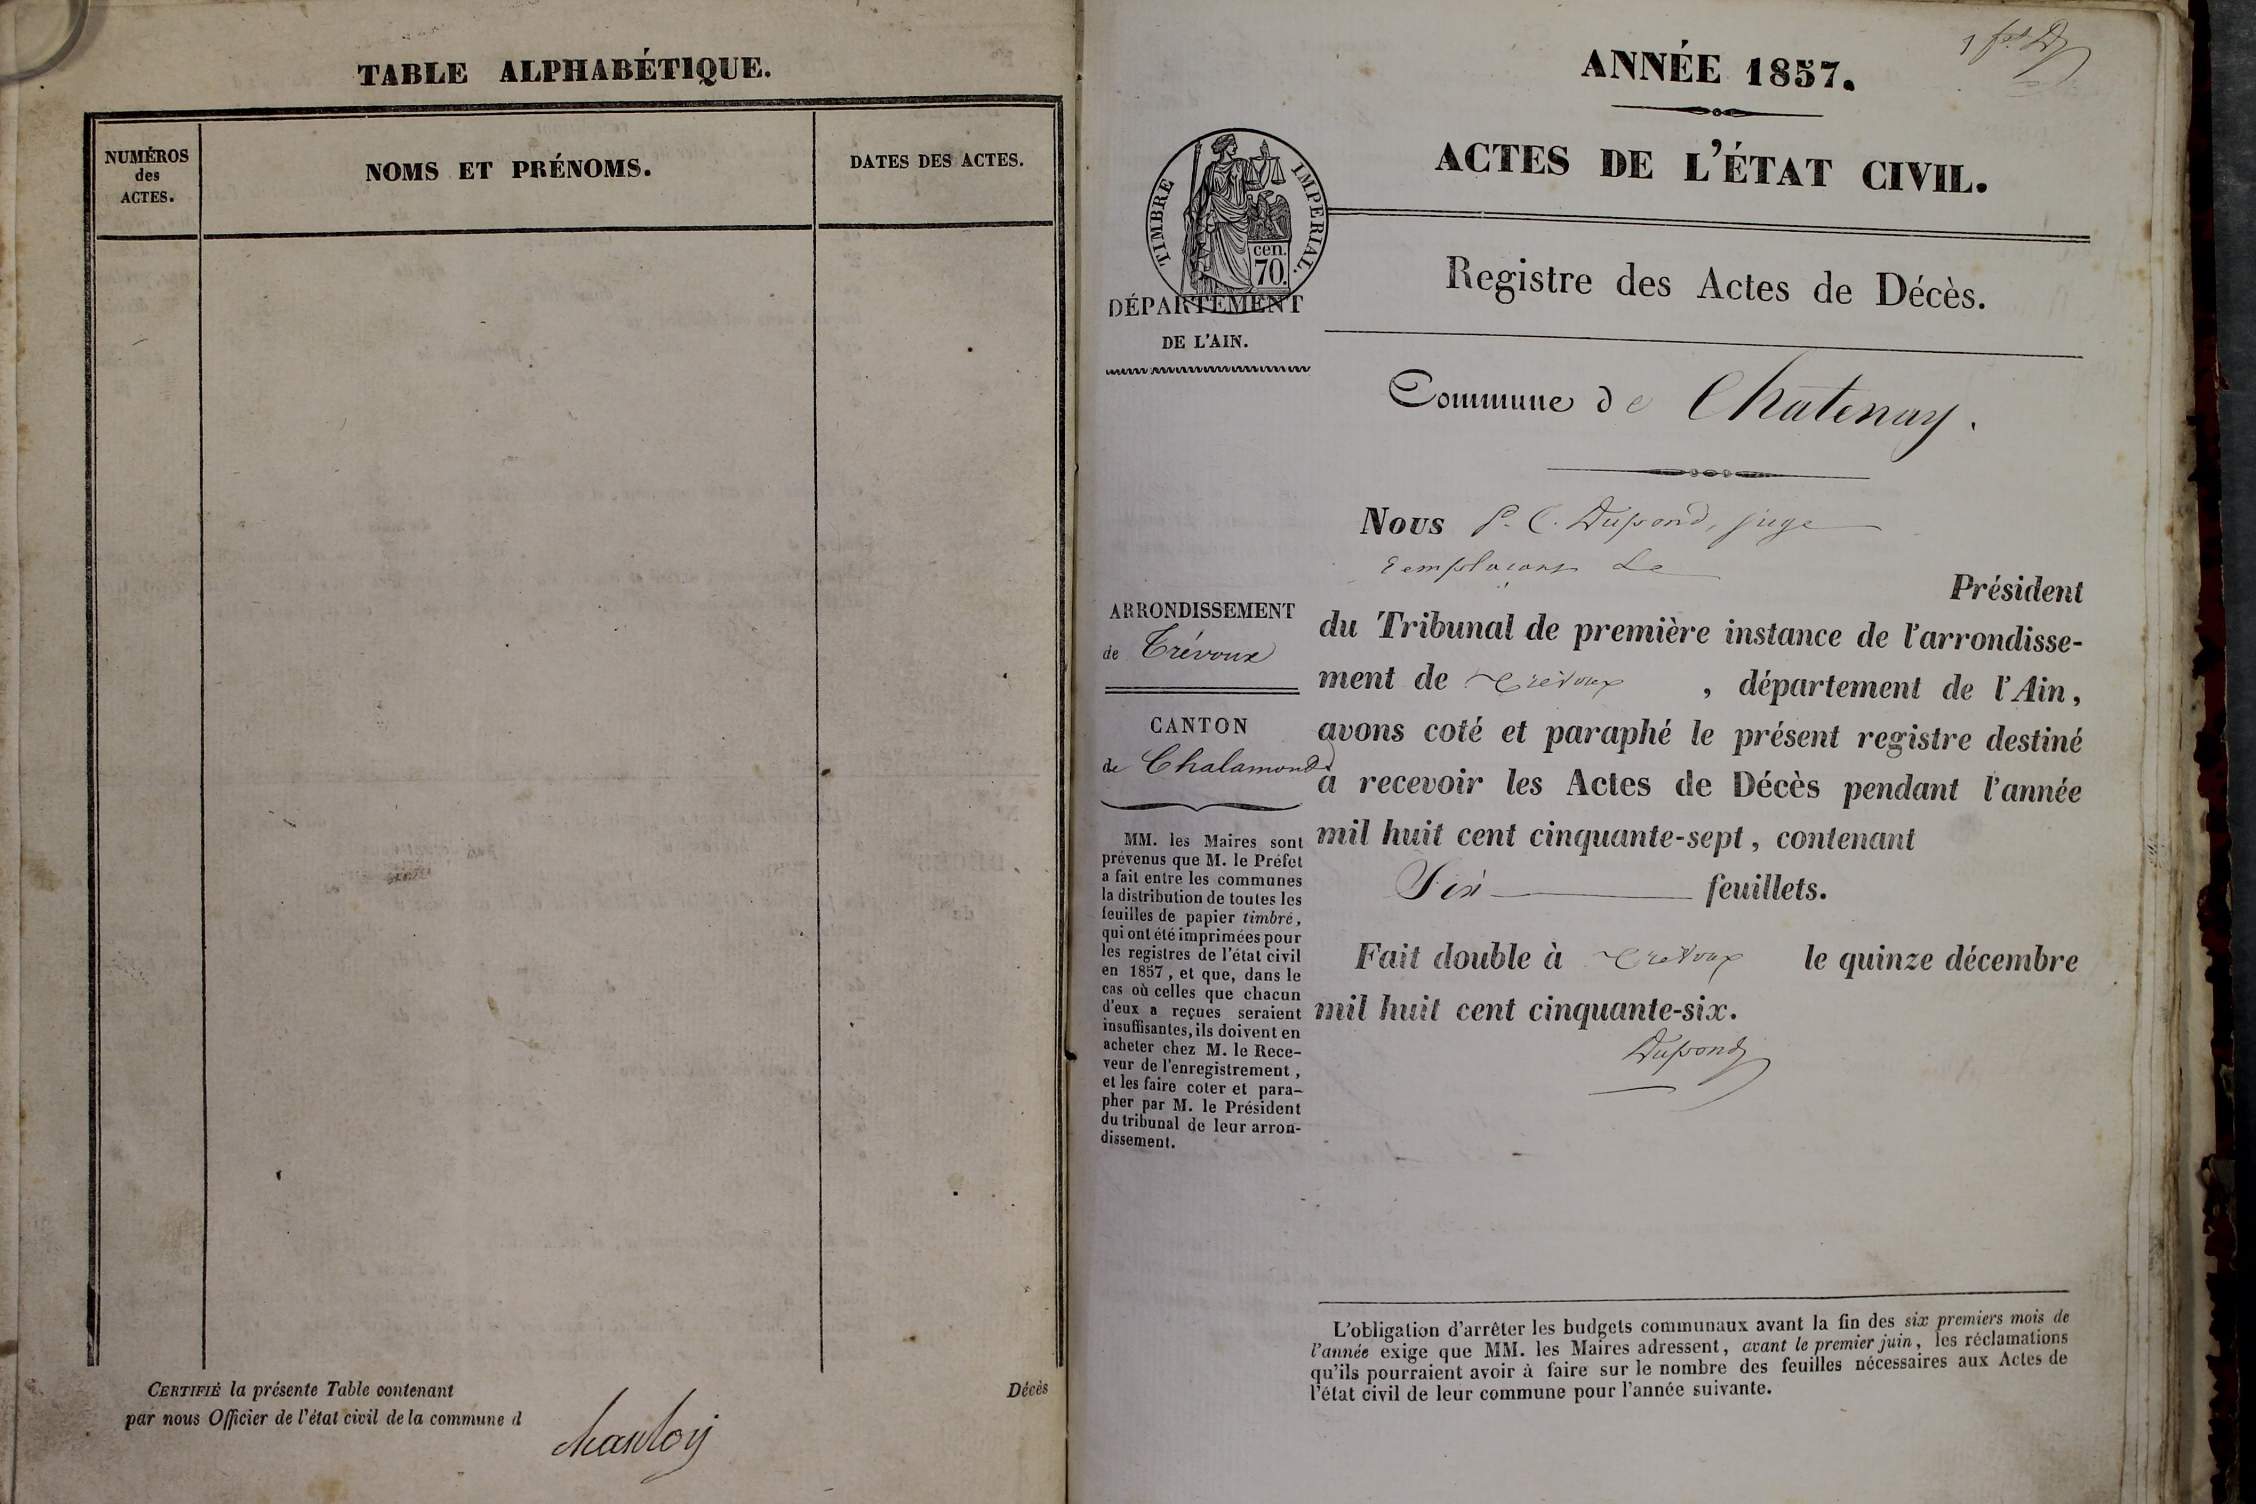 TABLE ALPHABÉTIQUE.
NUMÉROS
des
ACTES.
NOMS ET PRÉNOMS.
DATES DES ACTES.
CERTIFIÉ la présente Table contenant Décès
par nous Officier de l'état civil de la commune d
ANNÉE 1857.
ACTES DE L'ÉTAT CIVIL.
TIMBRE IMPERIAL.
cen.
70.
DÉPARTEMENT
DE L'AIN.
Registre des Actes de Décès.
Commune de Chatenay.
Nous P. C. Dupond, juge
remplaçant Le
Président
ARRONDISSEMENT
de Trévoux
CANTON
de Chalamond
MM. les Maires sont
prévenus que M. le Préfet
a fait entre les communes
la distribution de toutes les
feuilles de papier timbré,
qui ont été imprimées pour
les registres de l'état civil
en 1857, et que, dans le
cas où celles que chacun
d'eux a reçues seraient
insuffisantes, ils doivent en
acheter chez M. le Rece-
veur de l'enregistrement,
et les faire coter et para-
pher par M. le Président
du tribunal de leur arron-
dissement.
du Tribunal de première instance de l'arrondisse-
ment de Trévoux, département de l'Ain,
avons coté et paraphé le présent registre destiné
a recevoir les Actes de Décès pendant l'année
mil huit cent cinquante-sept, contenant
Six feuillets.
Fait double à Trévoux le quinze décembre
mil huit cent cinquante-six.
Dupond
L'obligation d'arrêter les budgets communaux avant la fin des six premiers mois de
l'année exige que MM. les Maires adressent, avant le premier juin, les réclamations
qu'ils pourraient avoir à faire sur le nombre des feuilles nécessaires aux Actes de
l'état civil de leur commune pour l'année suivante.